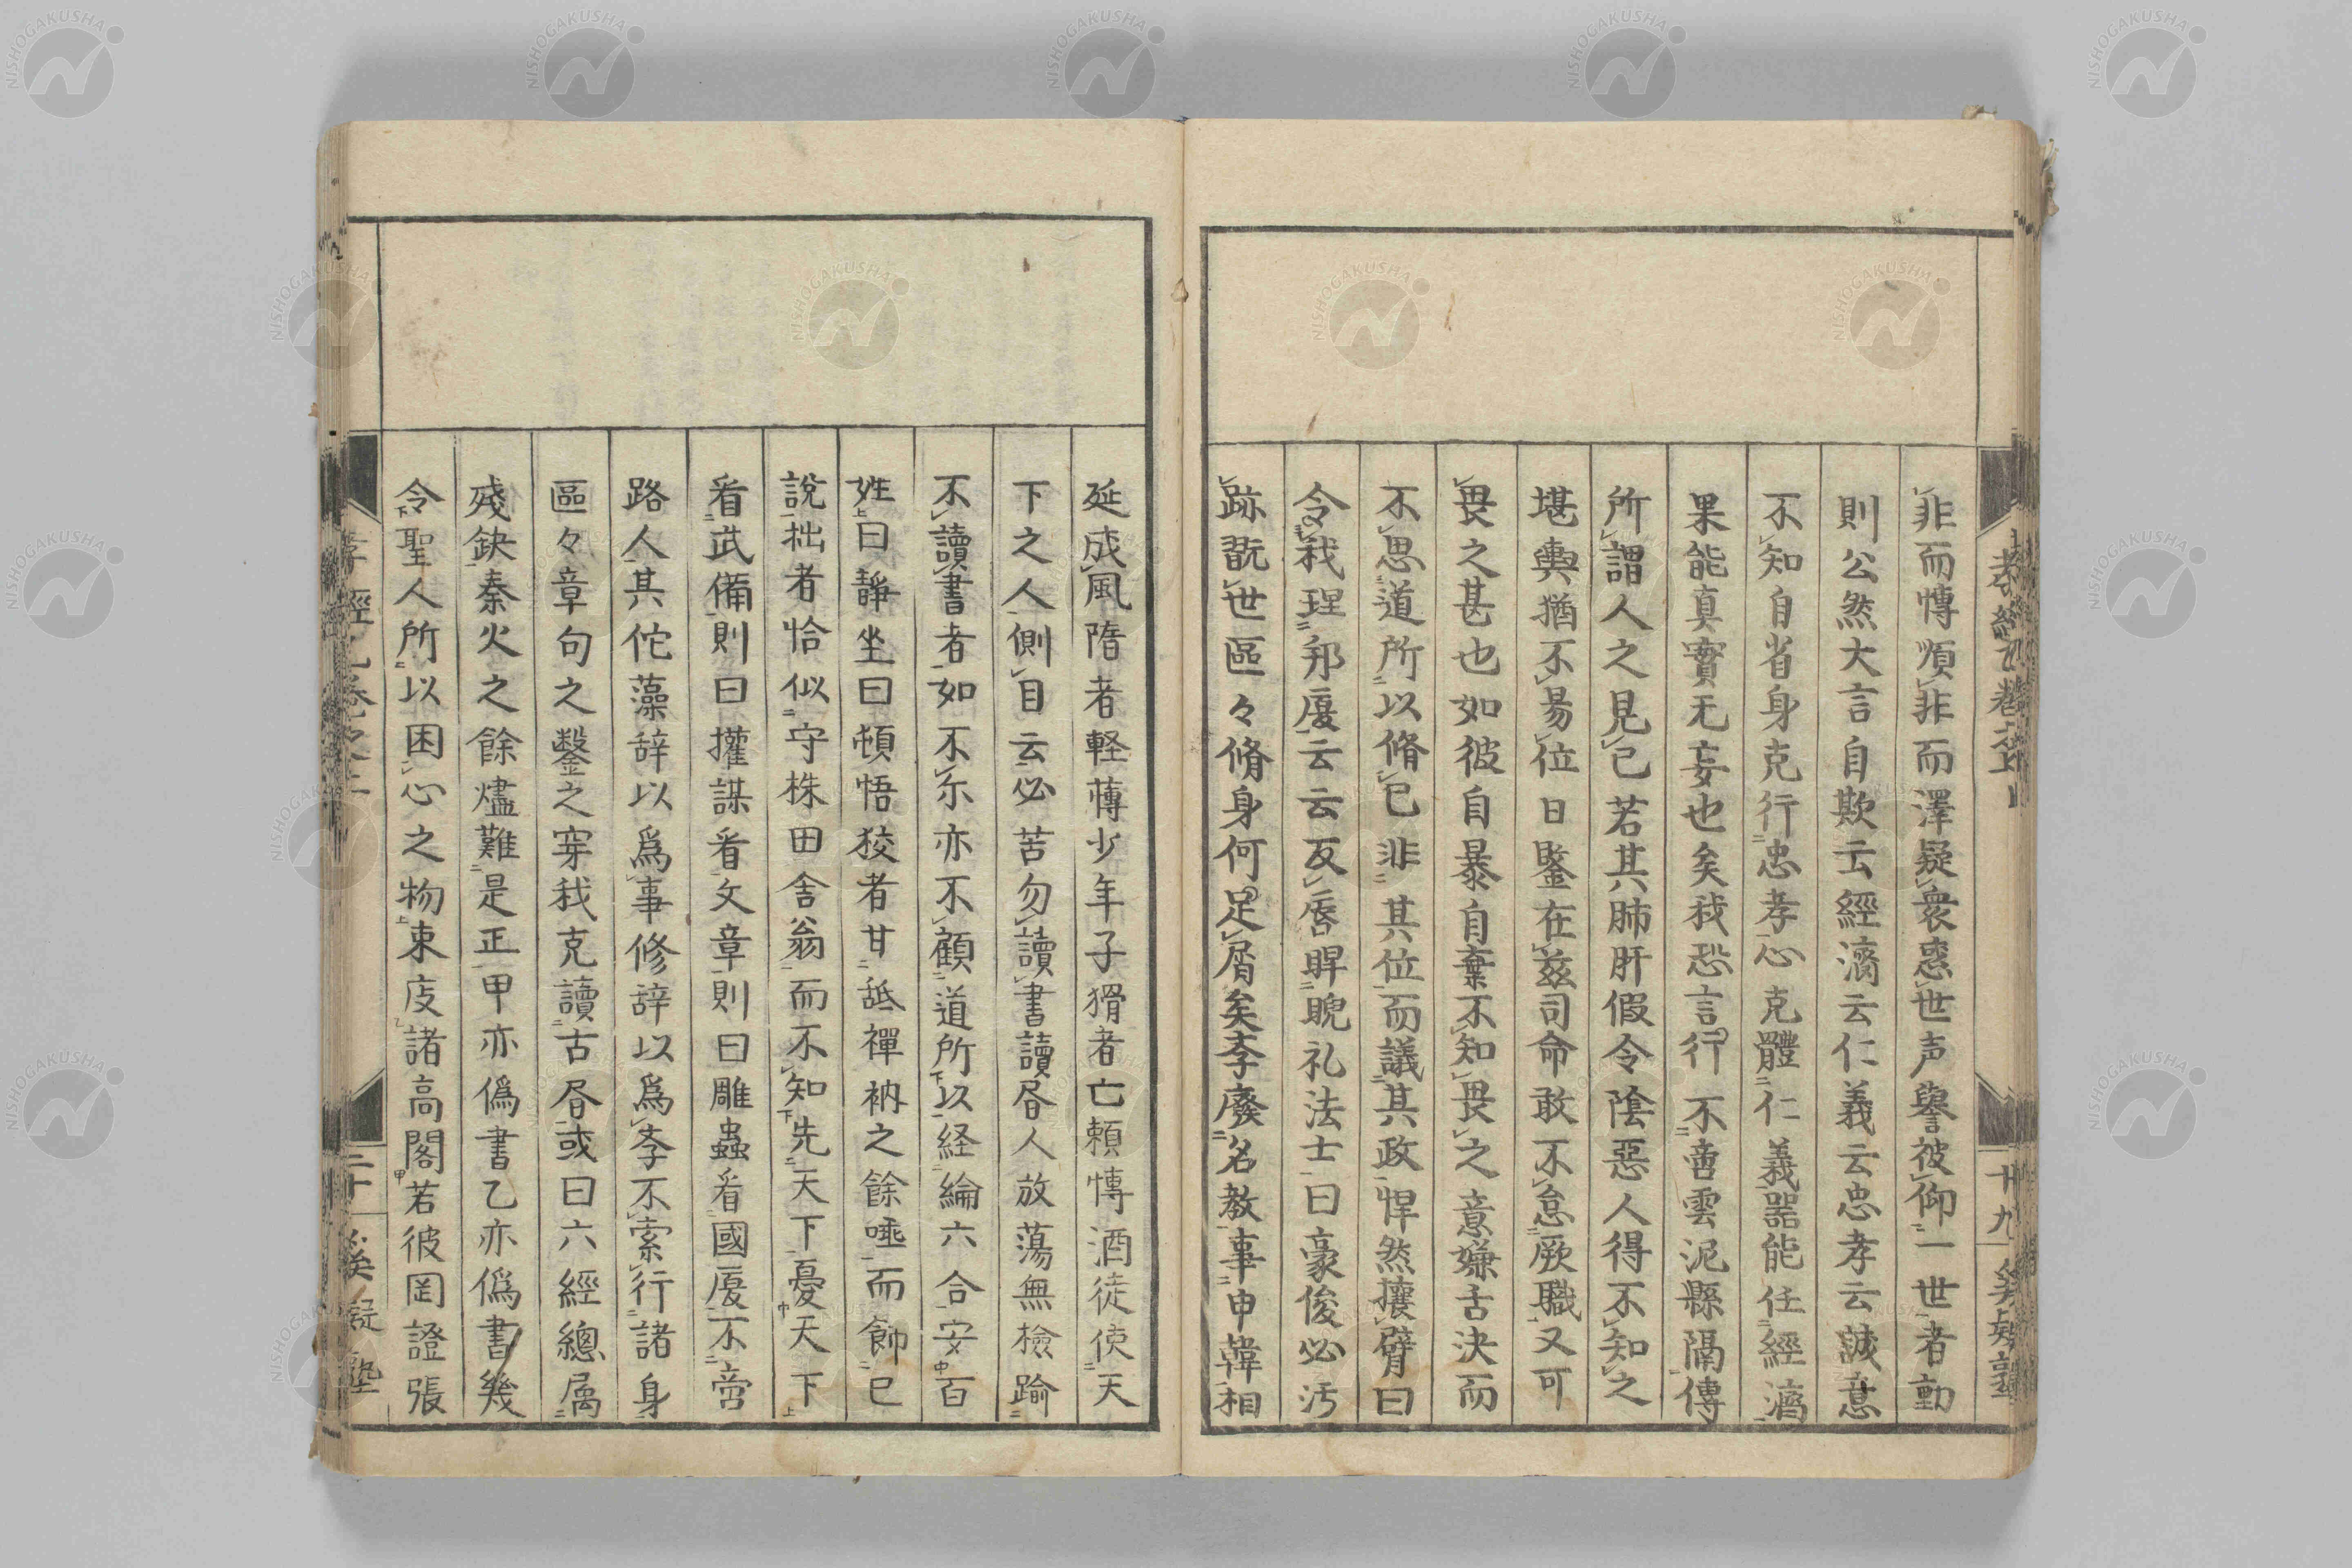 非而慱順非而澤疑衆惑世声譽彼仰一世者動
則公然大言自欺云經濟云仁義云忠孝云誠意
不知自省身克行忠孝心克體仁義噐能任經濟
果能真實无妄也矣我恐言行不啻雲泥縣隔傳
所謂人之見己若其肺肝假令陰惡人得不知之
堪輿猶不易位日鑒在玆司命敢不怠厥職又可
畏之甚也如彼自暴自棄不知畏之意嫌舌决而
不思道所以脩己非其位而議其政悍然攘臂曰
令我理邦廈云云反唇睅睨礼法士曰豪俊必汚
跡翫世區々脩身何足屑矣孝廢名教事申韓相
延成風隋者輕薄少年子猾者亡頼慱酒徒使天
下之人側目云必苦勿讀書讀昏人放蕩無檢踰
不讀書者如不尓亦不顧道所以経綸六合安百
姓曰靜坐曰頓悟狡者甘舐禪衲之餘唾而飾己
說拙者恰似守株田舎翁而不知先天下憂天下
看武備則曰權謀看文章則曰雕蟲看國廈不啻
路人其佗藻辞以爲事修辞以爲孝不索行諸身
區々章句之鑿之穿我克讀古昏或曰六經總属
殘缺秦火之餘燼難是正甲亦僞書乙亦僞書幾
令聖人所以困心之物束庋諸高閣若彼罔證張
二十